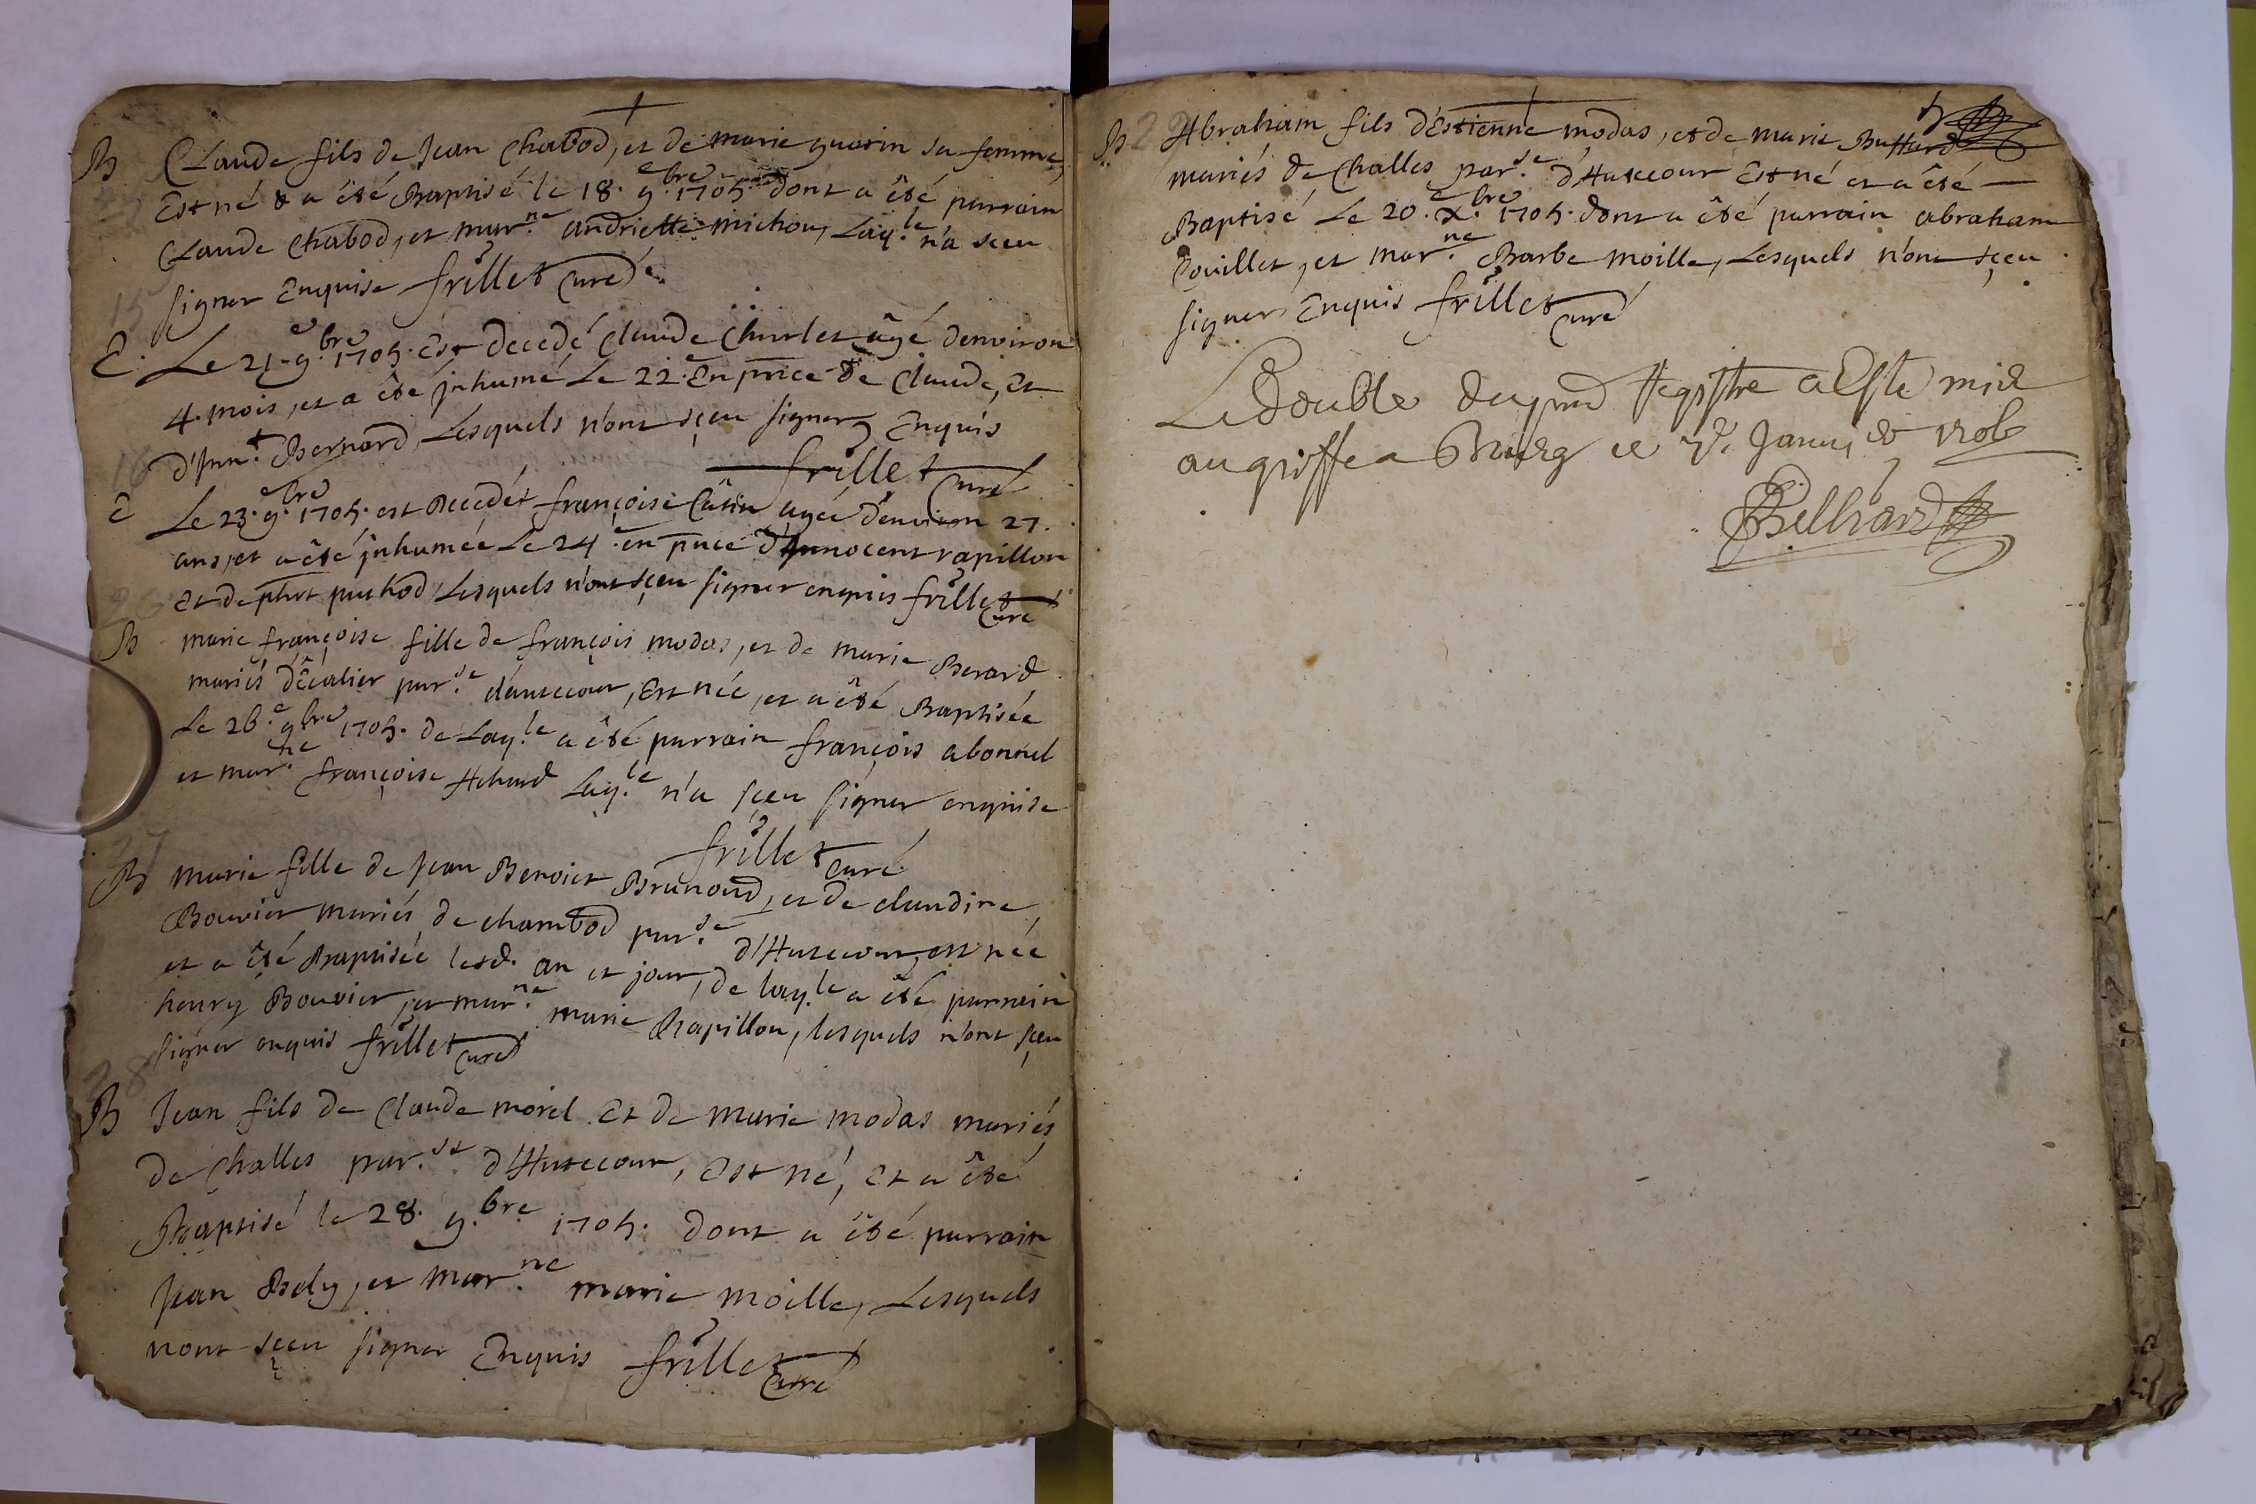 B Claude fils de Jean Chabod, et de marie guarin sa femme,
Est né & a êté Baptisé le 18.e 9.bre 1705. dont a êté parrain
Claude Chabod, et mar.ne andriette michon, Laq.le n'a sceu
signer Enquise frillet Curé
E. Le 21.e 9.bre 1705. Est decedé Claude Charlet âgé denviron
4. mois, et a êté jnhumé Le 22.e En pñce de Claude, Et
d'Jnn.t Bernard, Lesquels n'ont sçeu signer Enquis
frillet Curé
E Le 23.e 9.bre 1705. est decedée françoise Câtin agée d'environ 27.
ans, et a êté jnhumée Le 24.e en pñce d'Jnnocent rapillon
et de phrt puthod, Lesquels n'ont sçeu signer enquis frillet Curé
B marie françoise fille de françois modas, et de marie Berard
mariés d'êcalier par.se d'autecour, Est née, et a êté Baptisée
Le 26.e 9.bre 1705. de Laq.le a êté parrain françois abonnel
et mar.ne françoise Laq.le n'a sçeu signer enquise
frillet curé
B marie fille de Jean Benoict Brunoud, et de claudine
Bouvier mariés de chambod par.se d'Hutecour, est née
et a êté Baptisée lesd. an et jour, de laq.le a êté parrain
henry Bouvier, et mar.ne marie Rapillon, lesquels n'ont sçeu
signer enquis frillet curé
B Jean fils de Claude morel Et de marie modas mariés
de Challes par.se d'Hutecour, Est né, Et a êté
Baptisé le 28.e 9.bre 1705. dont a êté parrain
Jean Bely, et mar.ne marie moille, Lesquels
nont sçeu signer Enquis frillet Curé
B Abraham fils d'Estienne modas, et de marie Buffard
mariés de Challes par.se d'Hutecour Est né et a êté
Baptisé Le 20.e X.bre 1705. dont a êté parrain abraham
Couillet, et mar.ne Barbe moille, Lesquels n'ont sçeu
signer Enquis frillet curé
Le double du pñd Registre a Este mis
au greffe a Bourg ce 7.e Janv. 1706